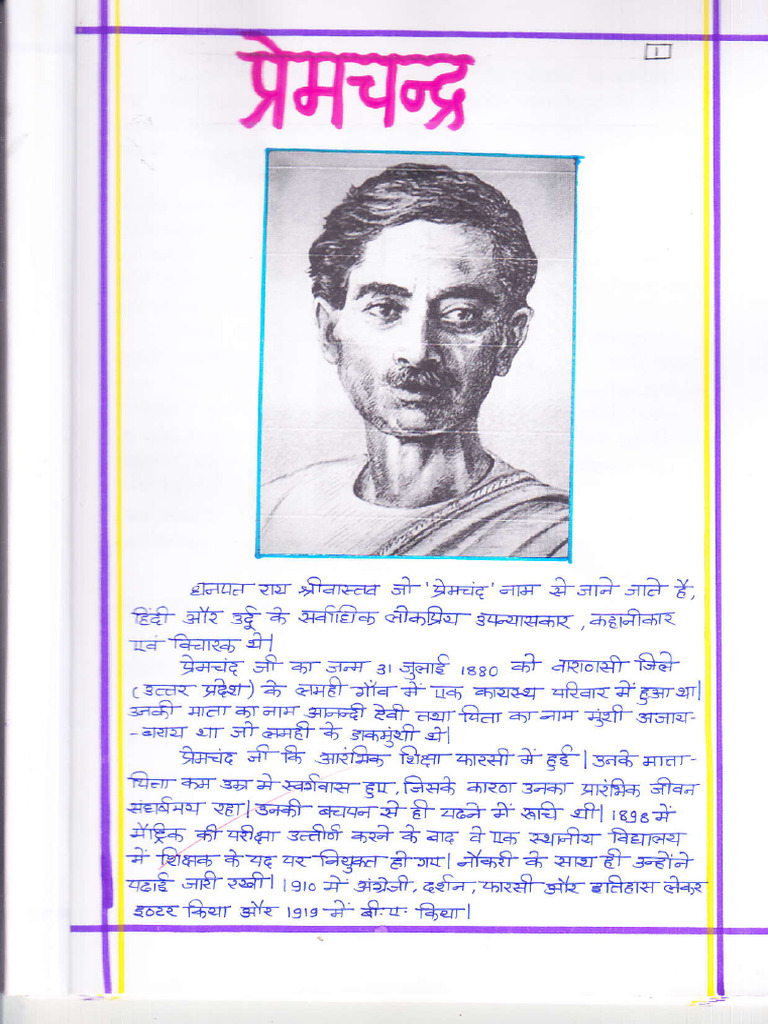 1
प्रेमचन्द्र
धनपत राय श्रीवास्तव जो 'प्रेमचंद' नाम से जाने जाते है,
हिंदी और उर्दू के सर्वाधिक लोकप्रिय उपन्यासकार, कहानीकार
एवं विचारक थे।
प्रेमचंद जी का जन्म 31 जुलाई 1880 को वाराणसी जिले
(उत्तर प्रदेश) के लमही गाँव में एक कायस्थ परिवार में हुआ था।
उनकी माता का नाम आनन्दी देवी तथा पिता का नाम मुंशी अजाय-
-बराय था जो लमही के डाकमुंशी थे।
प्रेमचंद जी कि आरंभिक शिक्षा फारसी में हुई। उनके माता-
पिता कम उम्र मे स्वर्गवास हुए, जिसके कारण उनका प्रारंभिक जीवन
संघर्षमय रहा। उनकी बचपन से ही पढने में रूचि थी। 1898 में
मैट्रिक की परीक्षा उत्तीर्ण करने के बाद वे एक स्थानीय विद्यालय
में शिक्षक के पद पर नियुक्त हो गए। नौकरी के साथ ही उन्होंने
पढाई जारी रखी। 1910 में अंग्रेजी, दर्शन, फारसी और इतिहास लेकर
इण्टर किया और 1919 में बी.ए. किया।